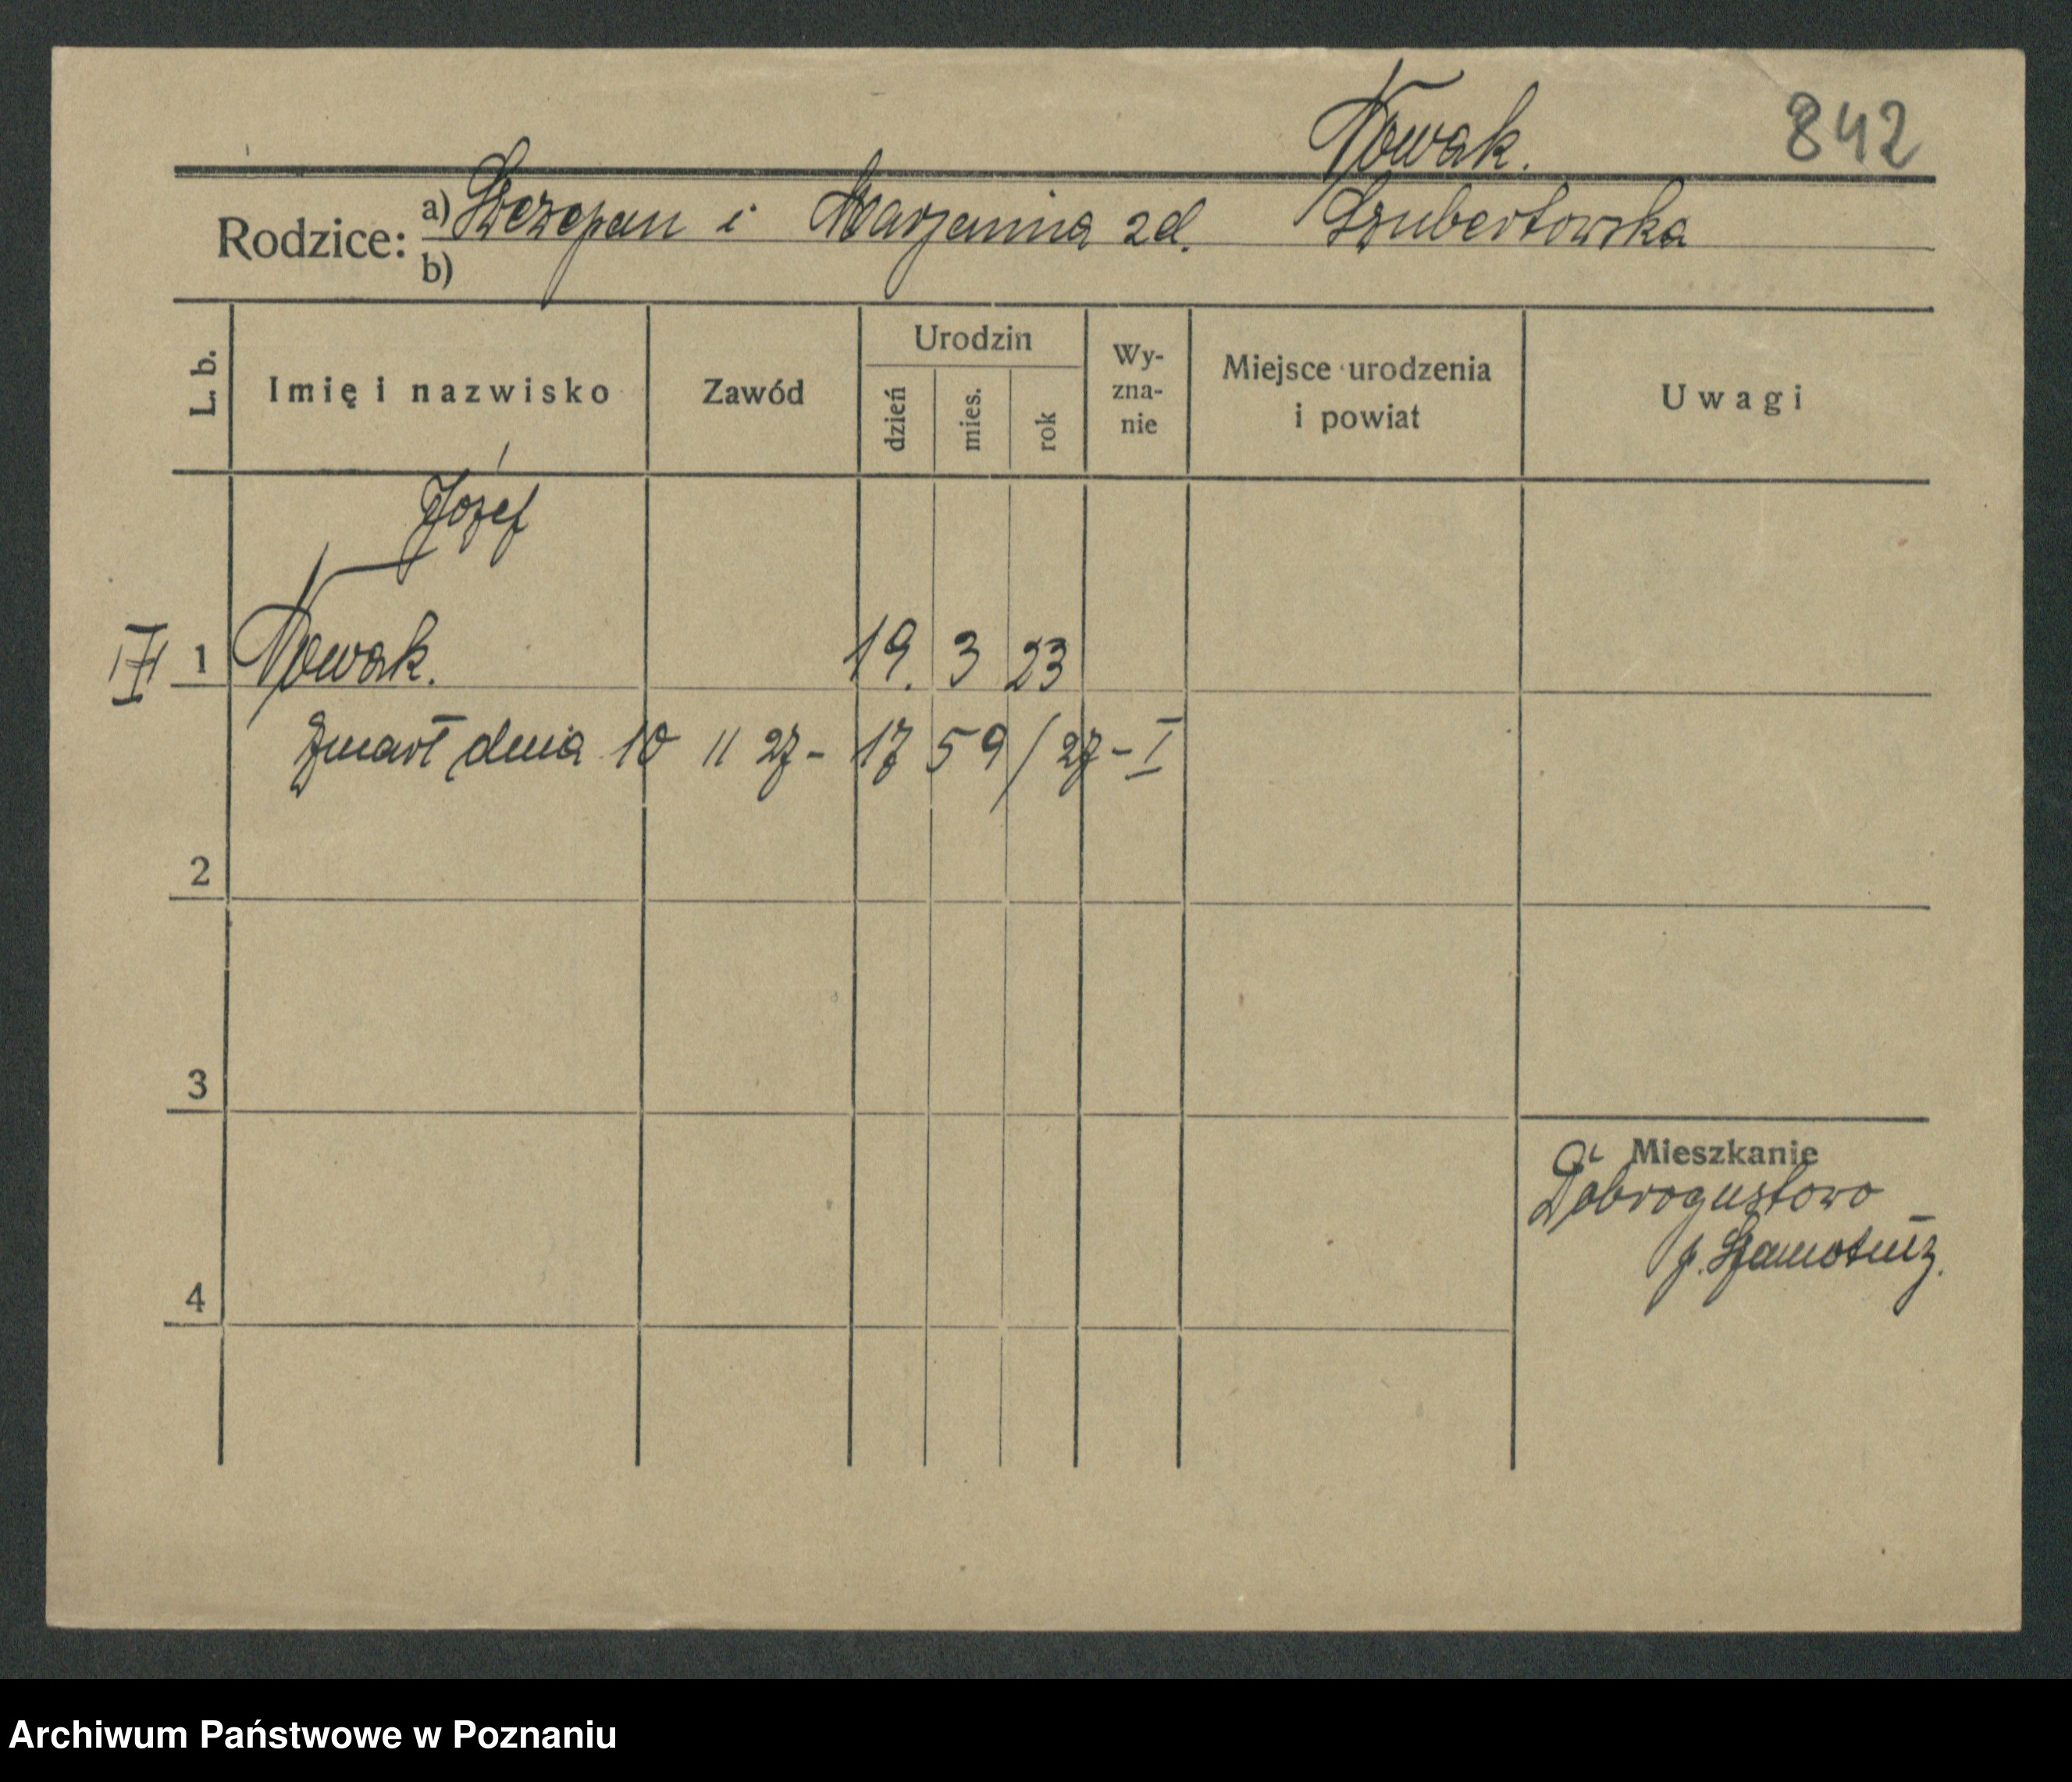 Nowak. 842
Rodzice: a) Szczepan i Marjanna zd. Szubertowska
b)
L. b. Imię i nazwisko Zawód Urodzin dzień mies. rok Wy-zna-nie Miejsce urodzenia i powiat Uwagi
Józef
1 Nowak. 19. 3 23
Zmarł dnia 10 11 27 - 1759/27 - I
2
3
Mieszkanie
Dobrogustowo
p. Szamotuły.
4
Archiwum Państwowe w Poznaniu